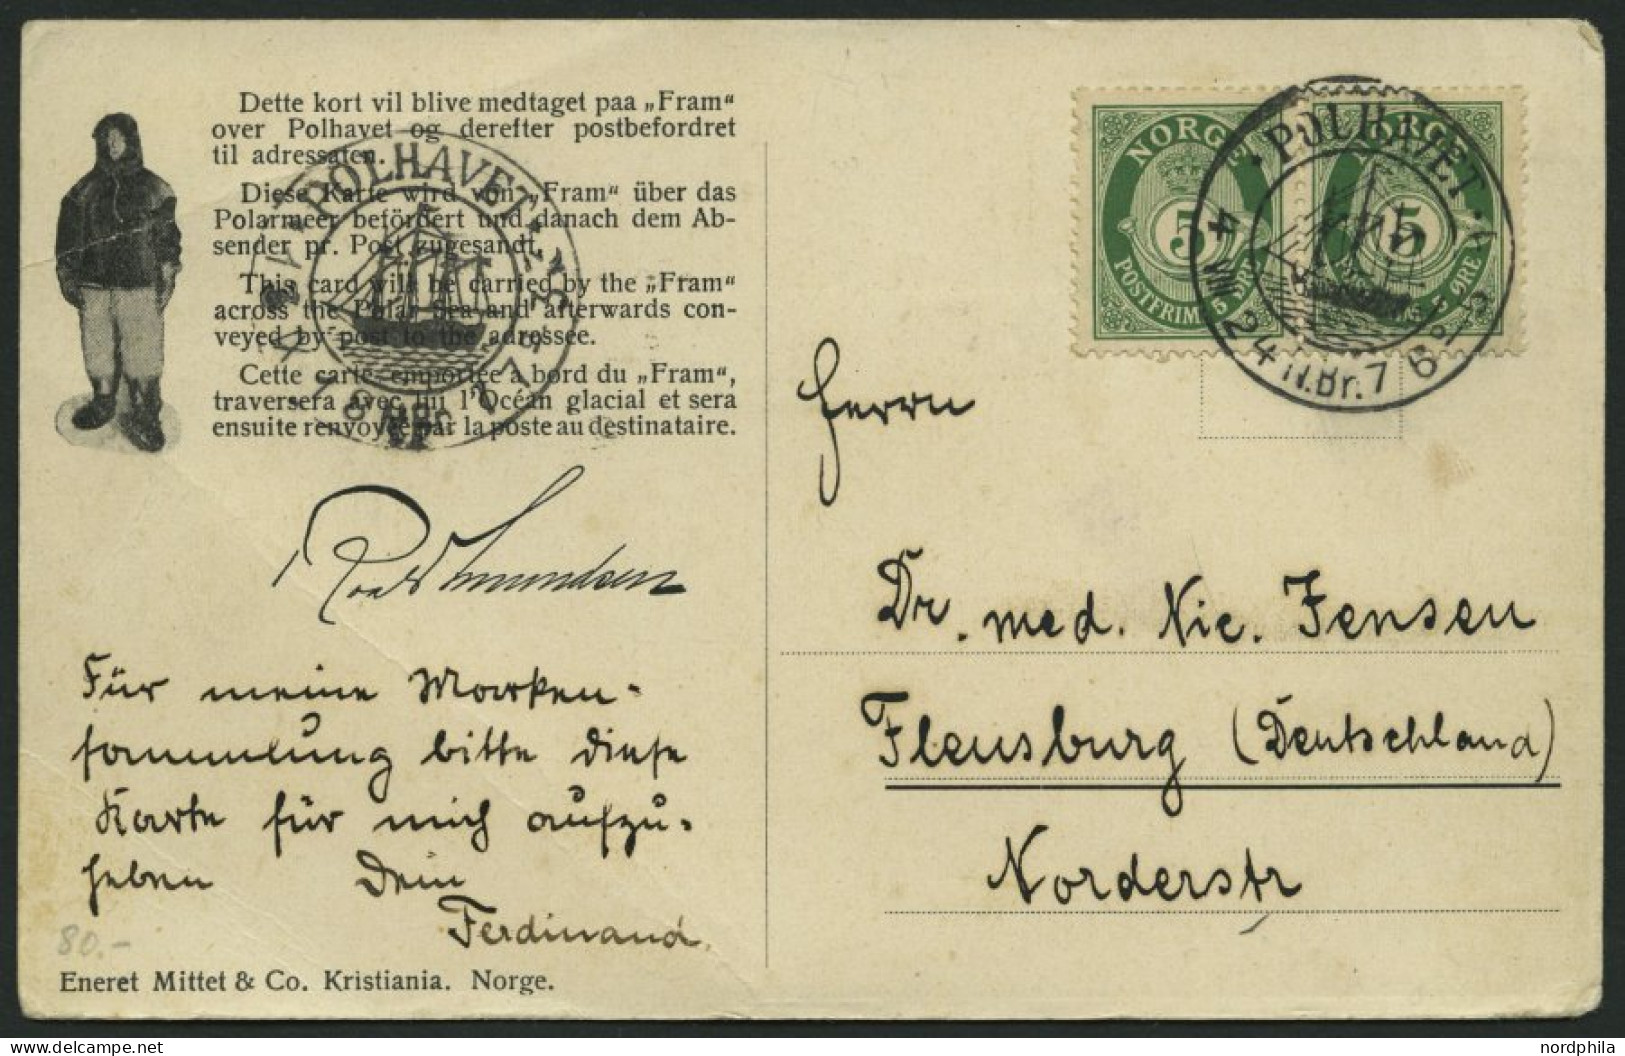 Dette kort vil blive medtaget paa „Fram“
over Polhavet og derefter postbefordret
til adressaten.
Diese Karte wird von „Fram“ über das
Polarmeer befördert und danach dem Ab-
sender pr. Post zugesandt.
This card will be carried by the „Fram“
across the Polar Sea and afterwards con-
veyed by post to the adressee.
Cette carte, emportée a bord du „Fram“,
traversera avec lui l'Océan glacial et sera
ensuite renvoyée par la poste au destinataire.
POLHAVET
Roald Amundsen
Für meine Marken-
sammlung bitte diese
Karte für mich aufzu-
heben Dein
Ferdinand.
80.-
Eneret Mittet & Co. Kristiania. Norge.
NORGE NORGE
5 5
POSTFRIM 5 ØRE
POLHAVET
4 VII 24 N.Br. 7
Herrn
Dr. med. Nic. Jensen
Flensburg (Deutschland)
Norderstr
nordphila